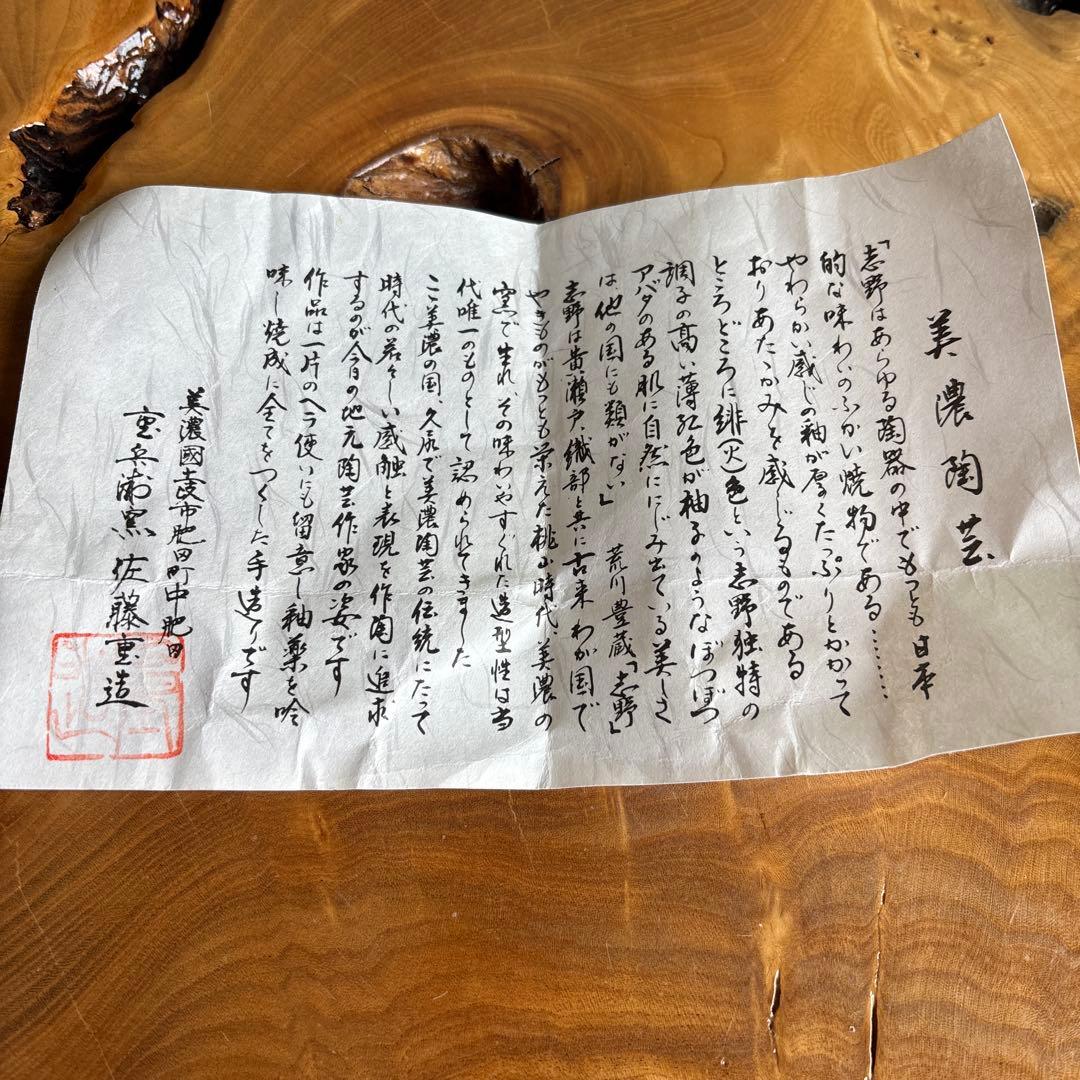 美濃陶芸
「志野はあらゆる陶器の中でもっとも日本
的な味わいのふかい焼物である………
やわらかい感じの釉が厚くたっぷりとかかって
おりあたゝかみを感じるものである
ところどころに緋(火)色という志野独特の
調子の高い薄紅色が柚子のようなぼつぼつ
アバタのある肌に自然ににじみ出ている美しさ
は、他の国にも類がない」　荒川豊蔵「志野」
志野は黄瀬戸、織部と共に古来わが国で
やきものがもっとも栄えた桃山時代、美濃の
窯で生れ、その味わいやすぐれた造型性は当
代唯一のものとして認められてきました
ここ美濃の国、久尻で美濃陶芸の伝統にたって
時代の若々しい感触と表現を作陶に追求
するのが今日の地元陶芸作家の姿です
作品は一片のヘラ使いにも留意し釉薬を吟
味し焼成に全てをつくした手造りです
美濃國土岐市肥田町中肥田
重兵衛窯 佐藤重造